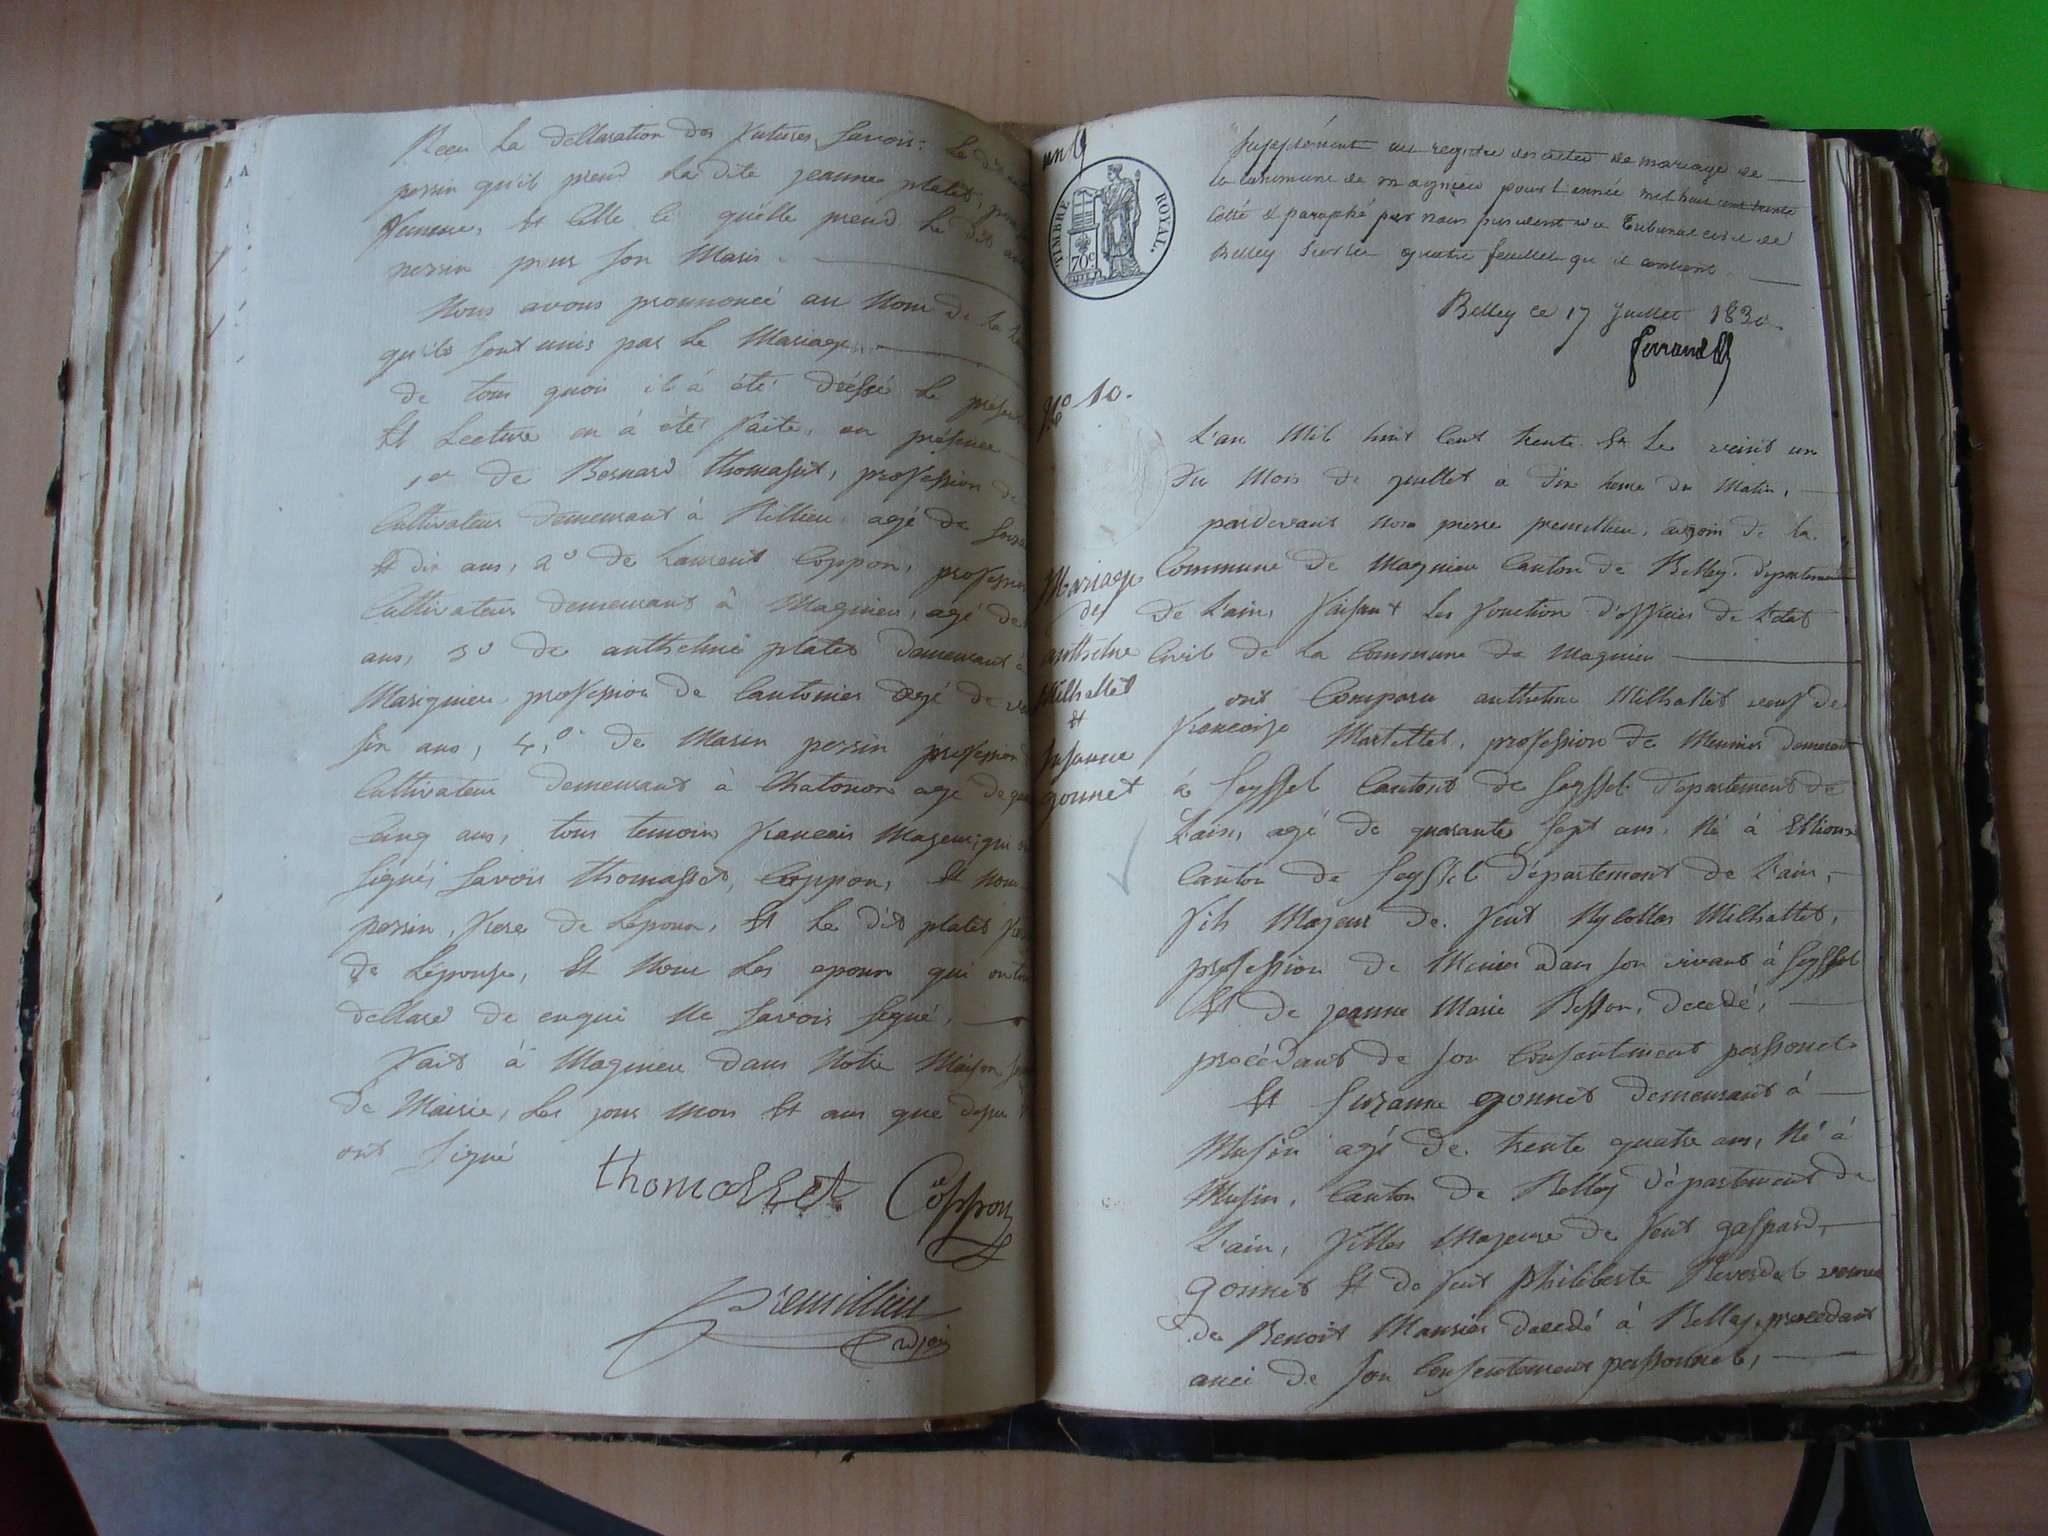 Recu la dellaration des futures, Savoir: Le dit
persin qu'il prend la dite jeanne platet, pour
femme, et Celle ci qu'elle prend le dit
persin pour son Maris.
Nous avons prononcé au Nom de la
qu'ils sont unis par le Mariage.
de tous quoi il à été dréssé le présent
Et Lecture en à été faite, en présence
1er de Bernard thomasset, profession de
Cultivateur demeurant à Rillieu, agé de
et dix ans, 2o de Laurent Coppon, profession
Cultivateur demeurant à Magnieu, agé de
ans, 3o de anthelme platet demeurant à
Marignieu profession de Cantonier agé de
six ans, 4o de Marin persin profession
Cultivateur demeurant à Chatonod agé de
Cinq ans, tous temoins francais Majeur, qui
signés savoir thomasset, Coppon, et non
persin, frere de Lépoux, Et le dit platet
de Lépouse, Et Non les epoux qui ont
dellaré de enqui Ne Savoir signé,
Fait à Magnieu dans Notre Maison
de Mairie, les jour Mois Et ans que dessu
ont signé
thomasset Coppon
premillieu
adjoin
TIMBRE ROYAL.
70c
Supplément au registre des actes de mariage de
la commune de magnieu pour l'année mil huit cent trente
Cotté et paraphé par nous president du Tribunal civil de
Belley sur les quatre feuillets qu'il contient
Belley ce 17 Juillet 1830
ferrand
No 10.
L'an Mil huit Cent trente Et Le veint un
du Mois de juellet à dix heure du Matin,
pardevant Nous pierre premillieu, adjoin de la
Commune de Magnieu Canton de Belley, departement
de L'ain, faisant Les fonction d'officier de L'etat
Civil de la Commune de Magnieu
Mariage
de
anthelme
Milhallet
et
Susanne
gonnet
ont Comparu anthelme Milhallet veuf de
francoise Martellet, profession de Meunier demeurant
à Seyssel Canton de Seyssel departement de
L'ain, agé de quarante sept ans, Né à
Canton de Seyssel département de L'ain,
fils Majeur de feut Nycollas Milhallet,
profession de Munier adans son vivant à Seyssel
Et de jeanne Marie Besson, decedé,
procédant de son Consentement personel
Et Suzanne gonnet demeurant à
Musin agé de trente quatre ans, Né à
Musin, Canton de Belley département de
L'ain, filles Majeure de feut gaspard,
gonnet Et de feut philiberte Reverdet veuve
de Benoit Mansier decedé à Belley, procedant
auci de son Consentement personnel,